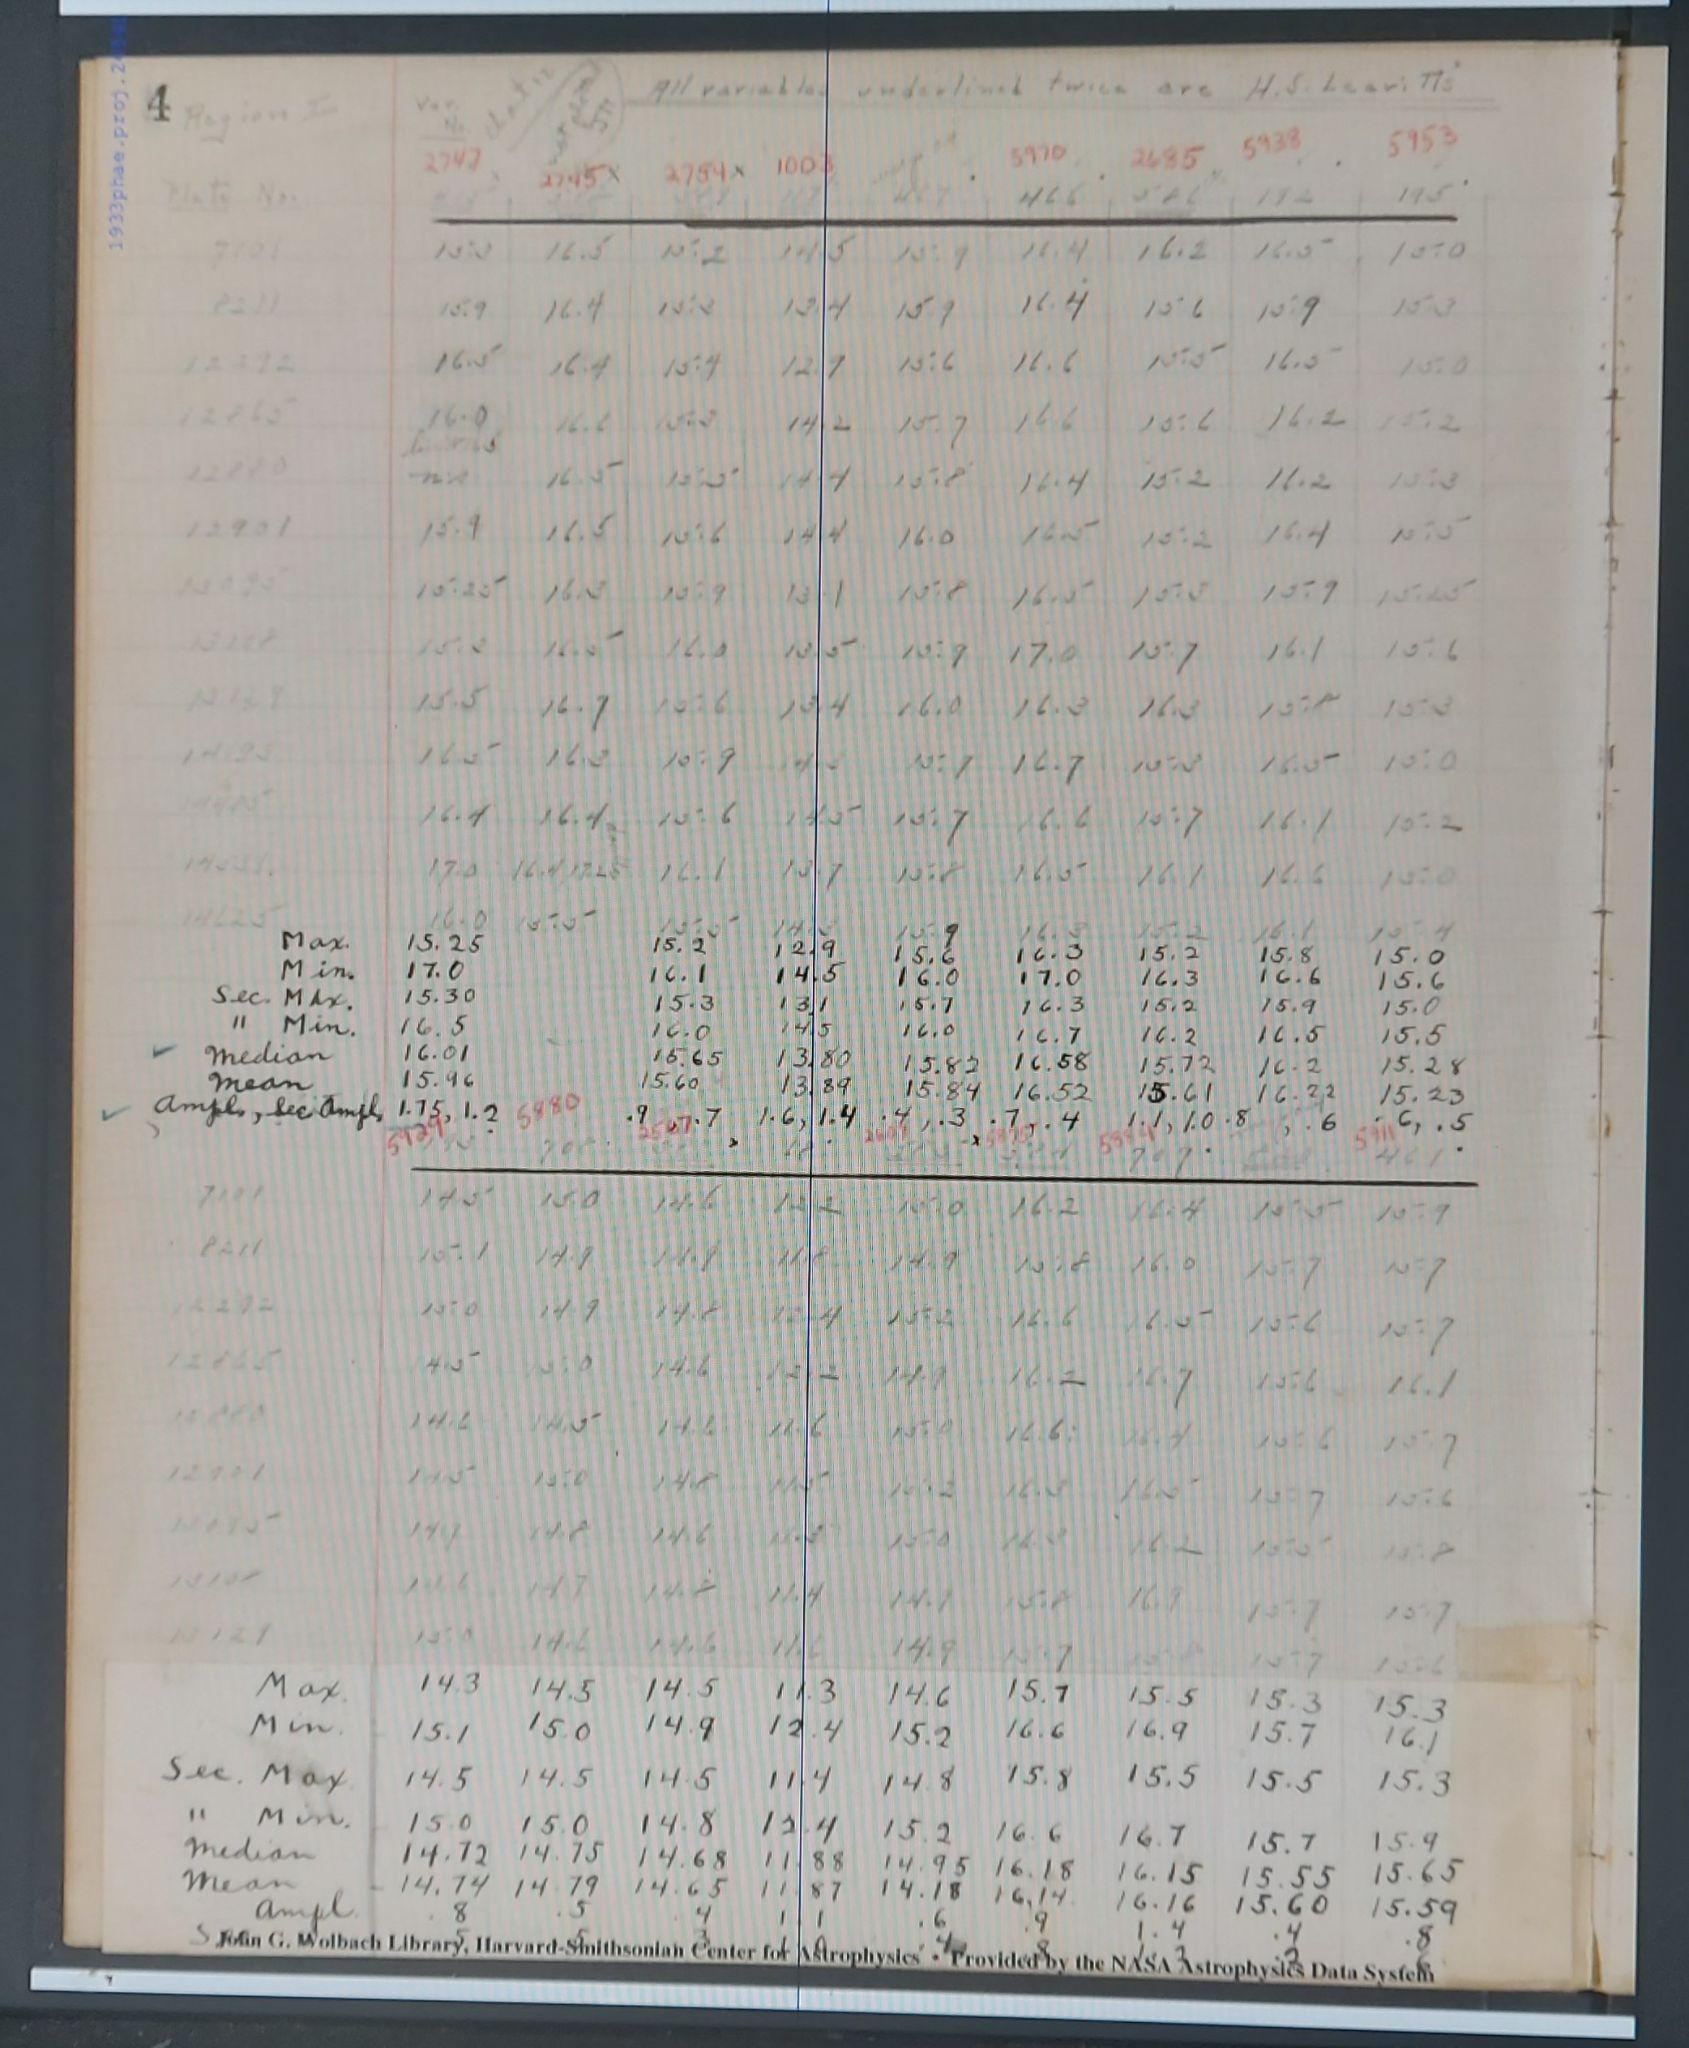 1933phae.proj.2
4 Region I Var. No. All variables underlined twice are H.S. Leavitt's
2747 2745x 2754x 1003 5970 2685 5938 5953
Plate No. 466 192 195
7101 15.3 16.5 15.2 14.5 15.9 16.4 16.2 16.5 15.0
8211 15.9 16.4 15.3 13.4 15.9 16.4 15.6 15.9 15.3
12292 16.5 16.4 15.4 12.9 15.6 16.6 15.5 16.5 15.0
12865 16.0 16.6 15.3 14.2 15.7 16.6 15.6 16.2 15.2
12880 16.5 15.5 14.4 15.8 16.4 15.2 16.2 15.3
12901 15.9 16.5 15.6 14.4 16.0 16.5 15.2 16.4 15.5
15.25 16.3 15.9 13.1 15.8 16.5 15.3 15.9 15.25
13108 15.3 16.5 16.0 13.5 15.9 17.0 15.7 16.1 15.6
13129 15.5 16.7 15.6 13.4 16.0 16.3 16.3 15.8 15.3
16.5 16.3 15.9 14.3 15.9 16.7 15.3 16.5 15.0
16.4 16.4 15.6 14.5 15.7 16.6 15.7 16.1 15.2
17.0 16.1 13.7 15.8 16.5 16.1 16.6 15.0
14625 16.0 15.5 15.5 15.9 16.3 15.2 16.1 15.4
Max. 15.25 15.2 12.9 15.6 16.3 15.2 15.8 15.0
Min. 17.0 16.1 14.5 16.0 17.0 16.3 16.6 15.6
Sec. Max. 15.30 15.3 13.1 15.7 16.3 15.2 15.9 15.0
" Min. 16.5 16.0 14.5 16.0 16.7 16.2 16.5 15.5
✓ Median 16.01 15.65 13.80 15.82 16.58 15.72 16.2 15.28
Mean 15.96 15.60 13.89 15.84 16.52 15.61 16.22 15.23
✓ Ampl., Sec Ampl. 1.75, 1.2 .9, .7 1.6, 1.4 .4, .3 .7, .4 1.1, 1.0 .8, .6 .6, .5
5929 5880 5911
708 707 461
7101 14.5 15.0 14.6 12.2 15.0 16.2 16.4 15.5 15.9
8211 15.1 14.9 14.9 11.8 14.9 15.8 16.0 15.7 15.7
12292 15.0 14.9 14.8 12.4 15.2 16.6 16.5 15.6 15.7
12865 14.5 15.0 14.6 12.2 14.9 16.2 16.7 15.6 16.1
12880 14.6 14.5 14.6 11.6 15.0 16.6: 16.4 15.6 15.7
12901 14.5 15.0 14.8 11.5 15.2 16.3 16.5 15.7 15.6
14.7 14.8 14.6 11.3 15.0 16.3 16.2 15.5 15.8
13108 14.6 14.7 14.8 11.4 14.9 15.8 16.9 15.7 15.7
13129 15.0 14.6 14.6 11.6 14.9 15.7 15.7 15.6
Max. 14.3 14.5 14.5 11.3 14.6 15.7 15.5 15.3 15.3
Min. 15.1 15.0 14.9 12.4 15.2 16.6 16.9 15.7 16.1
Sec. Max 14.5 14.5 14.5 11.4 14.8 15.8 15.5 15.5 15.3
" Min. 15.0 15.0 14.8 12.4 15.2 16.6 16.7 15.7 15.9
Median 14.72 14.75 14.68 11.88 14.95 16.18 16.15 15.55 15.65
Mean 14.74 14.79 14.65 11.87 14.18 16.14 16.16 15.60 15.59
Ampl. .8 .5 .4 1.1 .6 .9 1.4 .4 .8
John G. Wolbach Library, Harvard-Smithsonian Center for Astrophysics • Provided by the NASA Astrophysics Data System